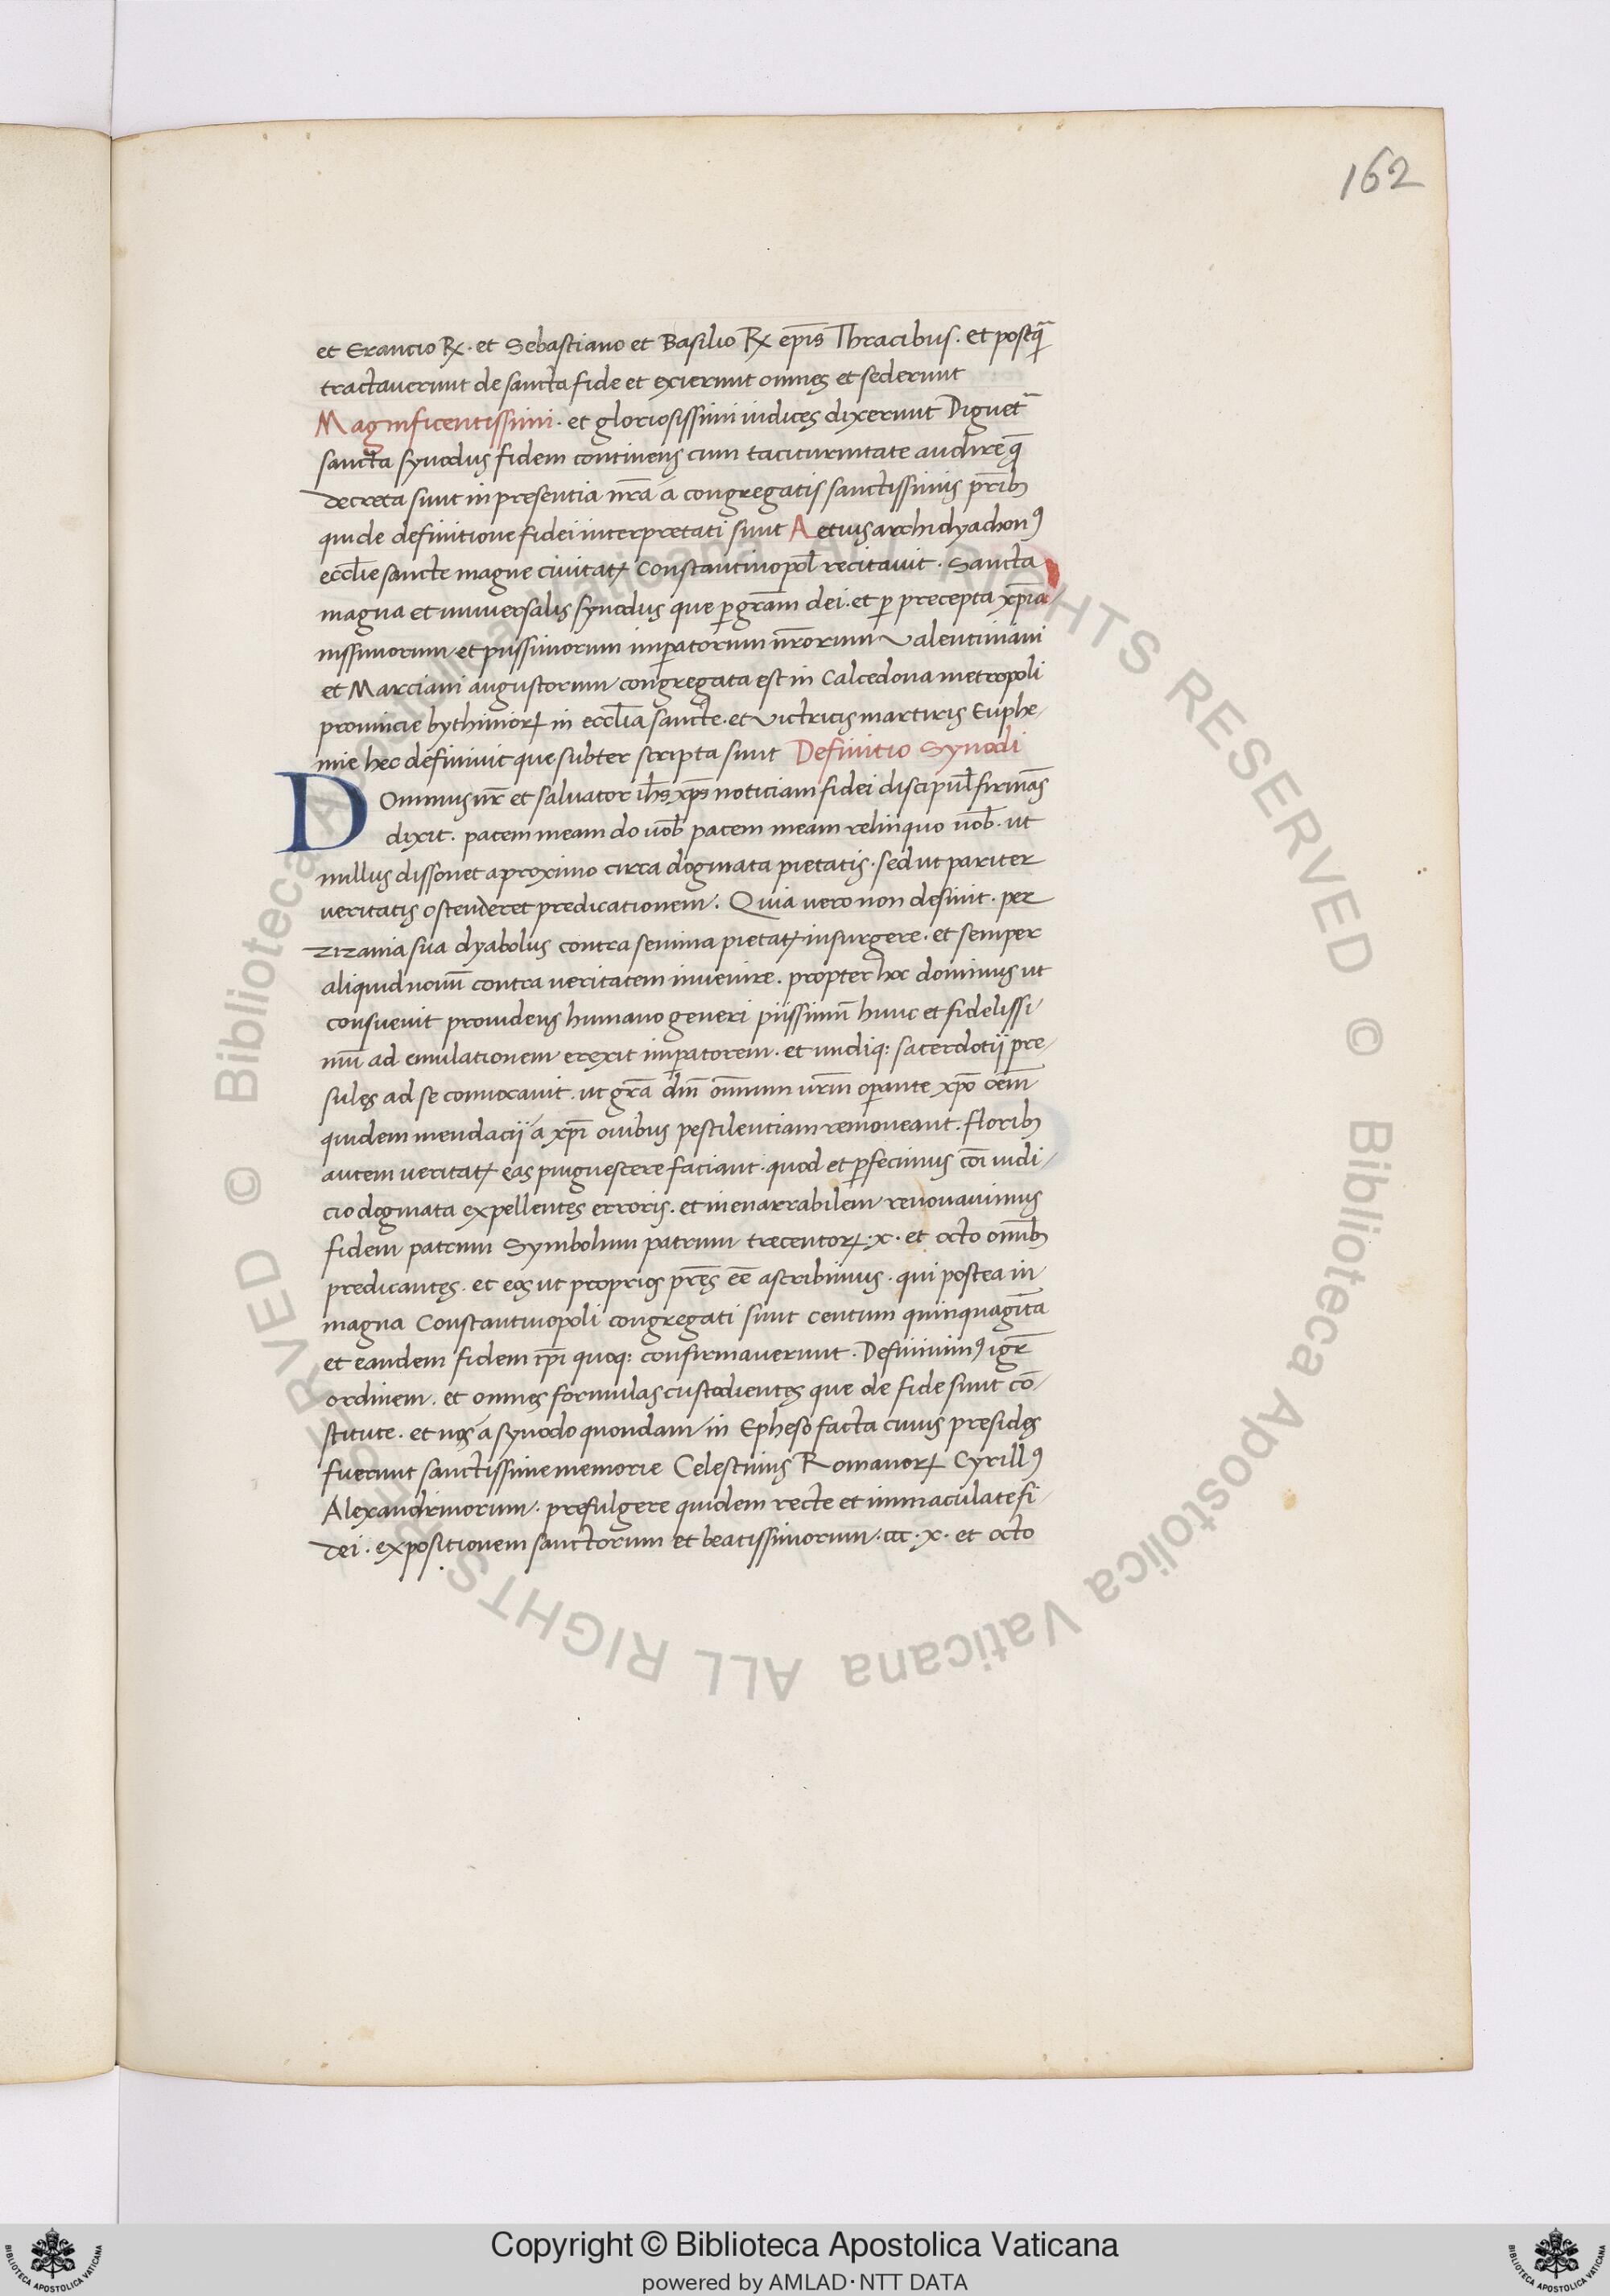 162
et Erancio R&#x2093;. et Sebastiano et Basilio R&#x2093; ep̄is Thracibus. et postq̄
tractaverunt de sancta fide et exierunt omnes et sederunt
Magnificentissimi. et gloriosissimi iudices dixerunt Dignet~
sancta synodus fidem continens cum taciturnitate audire q̄
decreta sunt in presentia nr̄a á congregatis sanctissimis pr̄ib
qui de definitione fidei interpretati sunt Aetius archidyachonꝰ
eccl̄ie sancte magne civitatꝭ Constantinopol̄ recitavit. Sancta
magna et universalis synodus que ꝑ gr̄am dei. et ꝑ precepta xp̄ia
nissimorum et piissimorum imꝑatorum nr̄orum Valentiniani
et Marciani augustorum congregata est in Calcedona metropoli
provincie bythinioꝝ in eccl̄ia sancte. et victricis martiris Euphe/
mie hec definivit que subter scripta sunt Definitio Synodi
Dominus nr̄ et salvator ih̄s xp̄s noticiam fidei discipul̄ firmās
dixit. pacem meam do vob̄ pacem meam relinquo vob̄. ut
nullus dissonet a proximo circa dogmata pietatis. sed ut pariter
veritatis ostenderet predicationem. Quia vero non desinit. per
zizania sua dyabolus contra semina pietatꝭ insurgere. et semper
aliquid novū contra veritatem invenire. propter hoc dominus ut
consuevit providens humano generi piissimū hunc et fidelissi/
mū ad emulationem erexit imꝑatorem. et undiq: sacerdotij pre/
sules ad se convocavit. ut gr̄a dn̄i om̄ium nr̄m oꝑante xp̄o oēm
quidem mendacij á xp̄i ovibus pestilentiam removeant. florib
autem veritatꝭ eas pinguescere faciant. quod et ꝑfecimus cōi iudi/
cio dogmata expellentes erroris. et inenarrabilem renovavimus
fidem patrum Symbolum patrum trecentoꝝ. x. et octo om̄ib
predicantes. et eos ut proprios pr̄es eē ascribimus. qui postea in
magna Constantinopoli congregati sunt centum quinquagīta
et eandem fidem ip̄i quoq: confirmaverunt. Definimꝰ igr̄
ordinem. et omnes formulas custodientes que de fide sunt cō/
stitute. et nos á synodo quondam in Epheso facta cuius presides
fuerunt sanctissime memorie Celestinus Romanoꝝ Cyrillꝰ
Alexandrinorum. prefulgere quidem recte et immaculate fi/
dei. expositionem sanctorum et beatissimorum. ccc. x. et octo
© Biblioteca Apostolica Vaticana ALL RIGHTS RESERVED © Biblioteca Apostolica Vaticana ALL RIGHTS RESERVED
Copyright © Biblioteca Apostolica Vaticana
powered by AMLAD·NTT DATA
BIBLIOTECA APOSTOLICA VATICANA
BIBLIOTECA APOSTOLICA VATICANA